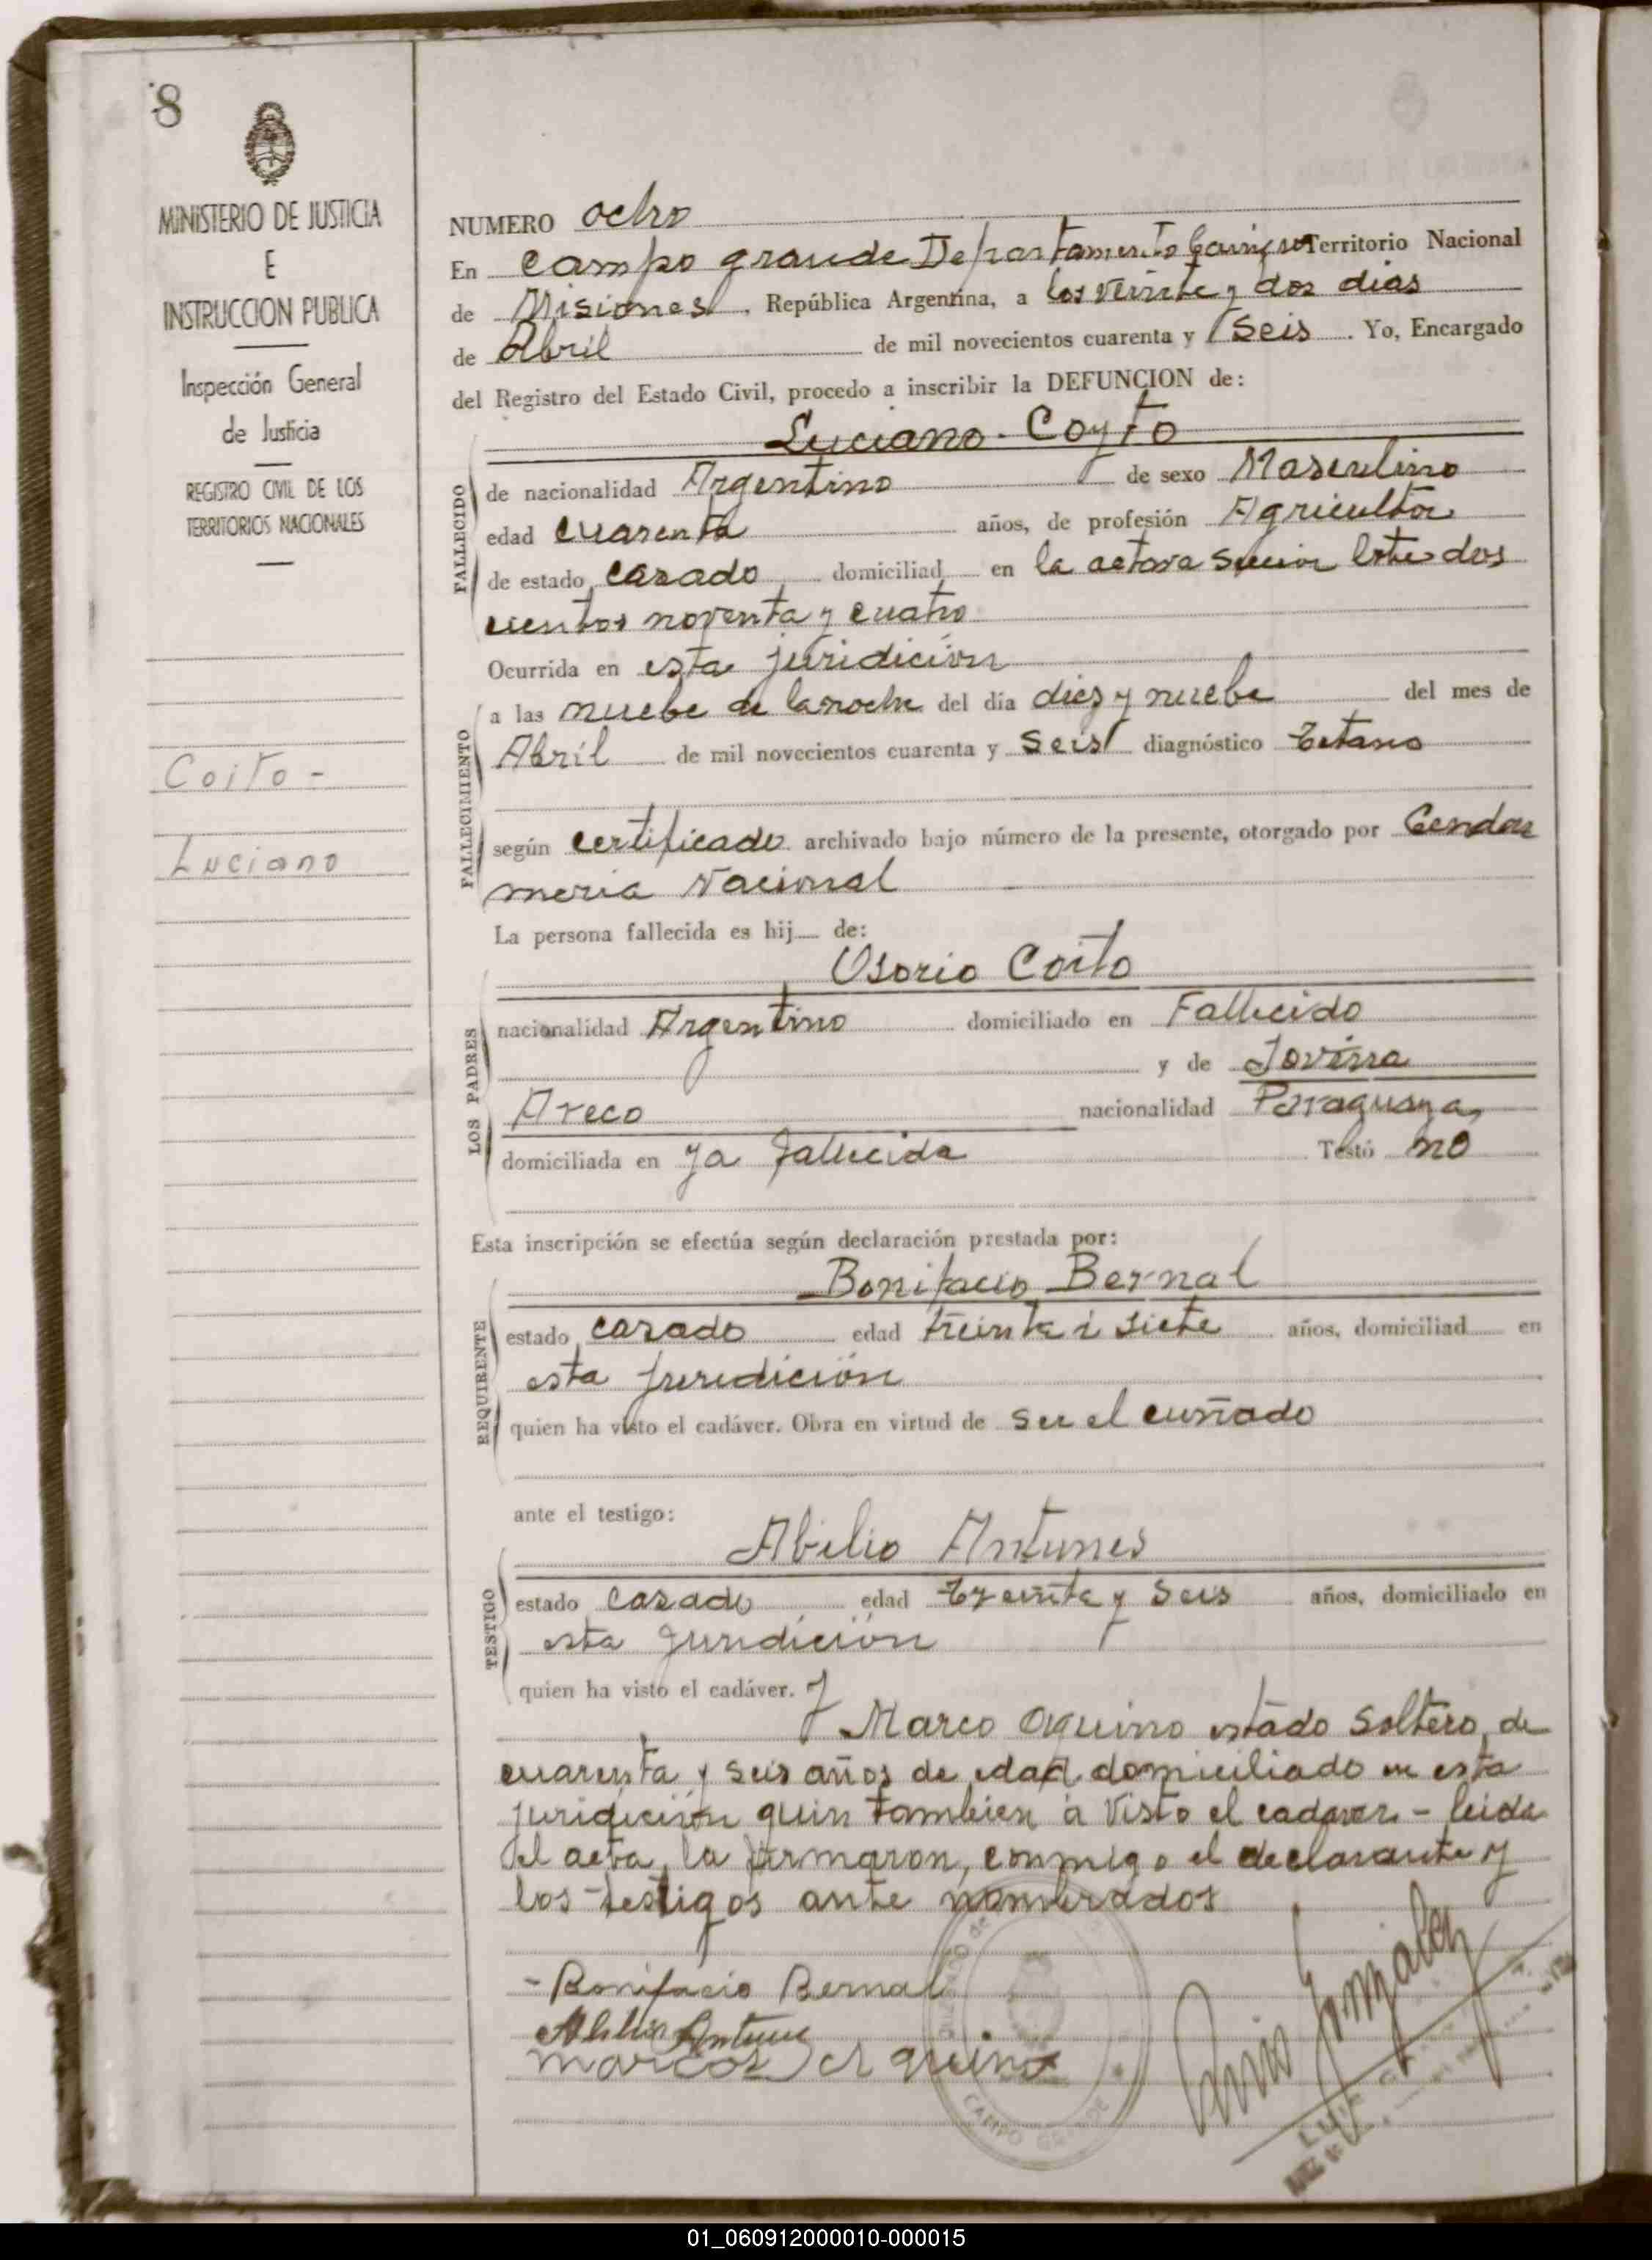 8
MINISTERIO DE JUSTICIA
E
INSTRUCCION PUBLICA
Inspección General
de Justicia
REGISTRO CIVIL DE LOS
TERRITORIOS NACIONALES
Coito -
Luciano
NUMERO ocho
En Campo grande Departamento Territorio Nacional
de Misiones, República Argentina, a los veinte y dos dias
de Abril de mil novecientos cuarenta y seis. Yo, Encargado
del Registro del Estado Civil, procedo a inscribir la DEFUNCION de:
Luciano - Coyto
FALLECIDO
de nacionalidad Argentino de sexo Masculino
edad cuarenta años, de profesión Agricultor
de estado casado domiciliad en la octava sección lote dos
cientos noventa y cuatro
Ocurrida en esta juridición
FALLECIMIENTO
a las nuebe de la noche del día diez y nuebe del mes de
Abril de mil novecientos cuarenta y seis diagnóstico Tetano
según certificado archivado bajo número de la presente, otorgado por Gendar
meria Nacional
La persona fallecida es hij de:
LOS PADRES
Osorio Coito
nacionalidad Argentino domiciliado en Fallecido
y de Jovina
Areco nacionalidad Paraguaya,
domiciliada en ya fallecida Testó no
Esta inscripción se efectúa según declaración prestada por:
REQUIRENTE
Bonifacio Bernal
estado casado edad treinta i siete años, domiciliad en
esta juridición
quien ha visto el cadáver. Obra en virtud de ser el cuñado
ante el testigo:
TESTIGO
Abilio Antunes
estado casado edad treinta y seis años, domiciliado en
esta juridición
quien ha visto el cadáver. y
Marco Aquino estado soltero, de
cuarenta y seis años de edad domiciliado en esta
juridición quin tambien a visto el cadaver - leida
el acta, la firmaron, conmigo el declarante y
los testigos ante nombrados
- Bonifacio Bernal
Abilio Antunes
marcos aquino
Luis Gonzalez
CAMPO GRANDE
01_060912000010-000015